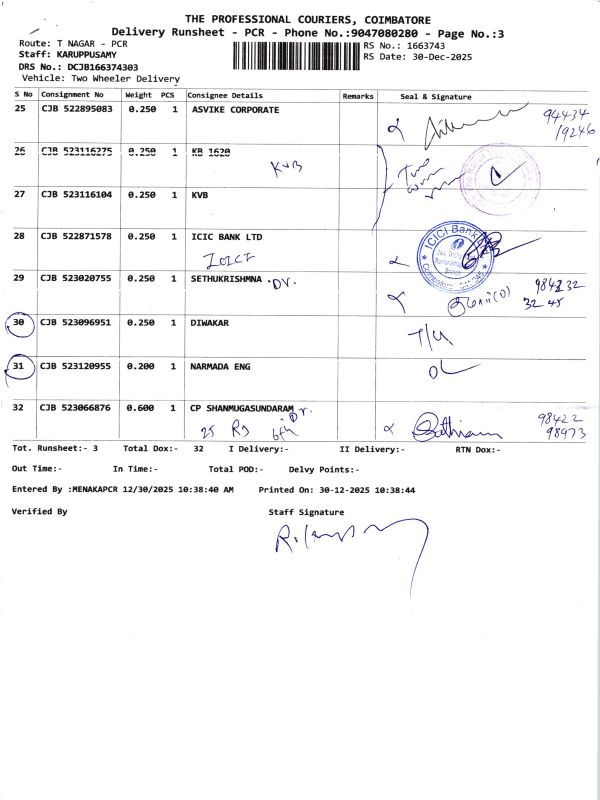 THE PROFESSIONAL COURIERS, COIMBATORE
Delivery Runsheet - PCR - Phone No.:9047080280 - Page No.:3
Route: T NAGAR - PCR RS No.: 1663743
Staff: KARUPPUSAMY RS Date: 30-Dec-2025
DRS No.: DCJB166374303
Vehicle: Two Wheeler Delivery
S No Consignment No Weight PCS Consignee Details Remarks Seal & Signature
25 CJB 522895083 0.250 1 ASVIKE CORPORATE 94434
19246
26 CJB 523116275 0.250 1 KB 1620
KVB
27 CJB 523116104 0.250 1 KVB
28 CJB 522871578 0.250 1 ICIC BANK LTD ICICI Bank
ICICI
29 CJB 523020755 0.250 1 SETHUKRISHMNA .DV.
32 45
30 CJB 523096951 0.250 1 DIWAKAR
31 CJB 523120955 0.200 1 NARMADA ENG DL
32 CJB 523066876 0.600 1 CP SHANMUGASUNDARAM 98422
25 98973
Tot. Runsheet:- 3 Total Dox:- 32 I Delivery:- II Delivery:- RTN Dox:-
Out Time:- In Time:- Total POD:- Delvy Points:-
Entered By :MENAKAPCR 12/30/2025 10:38:40 AM Printed On: 30-12-2025 10:38:44
Verified By Staff Signature